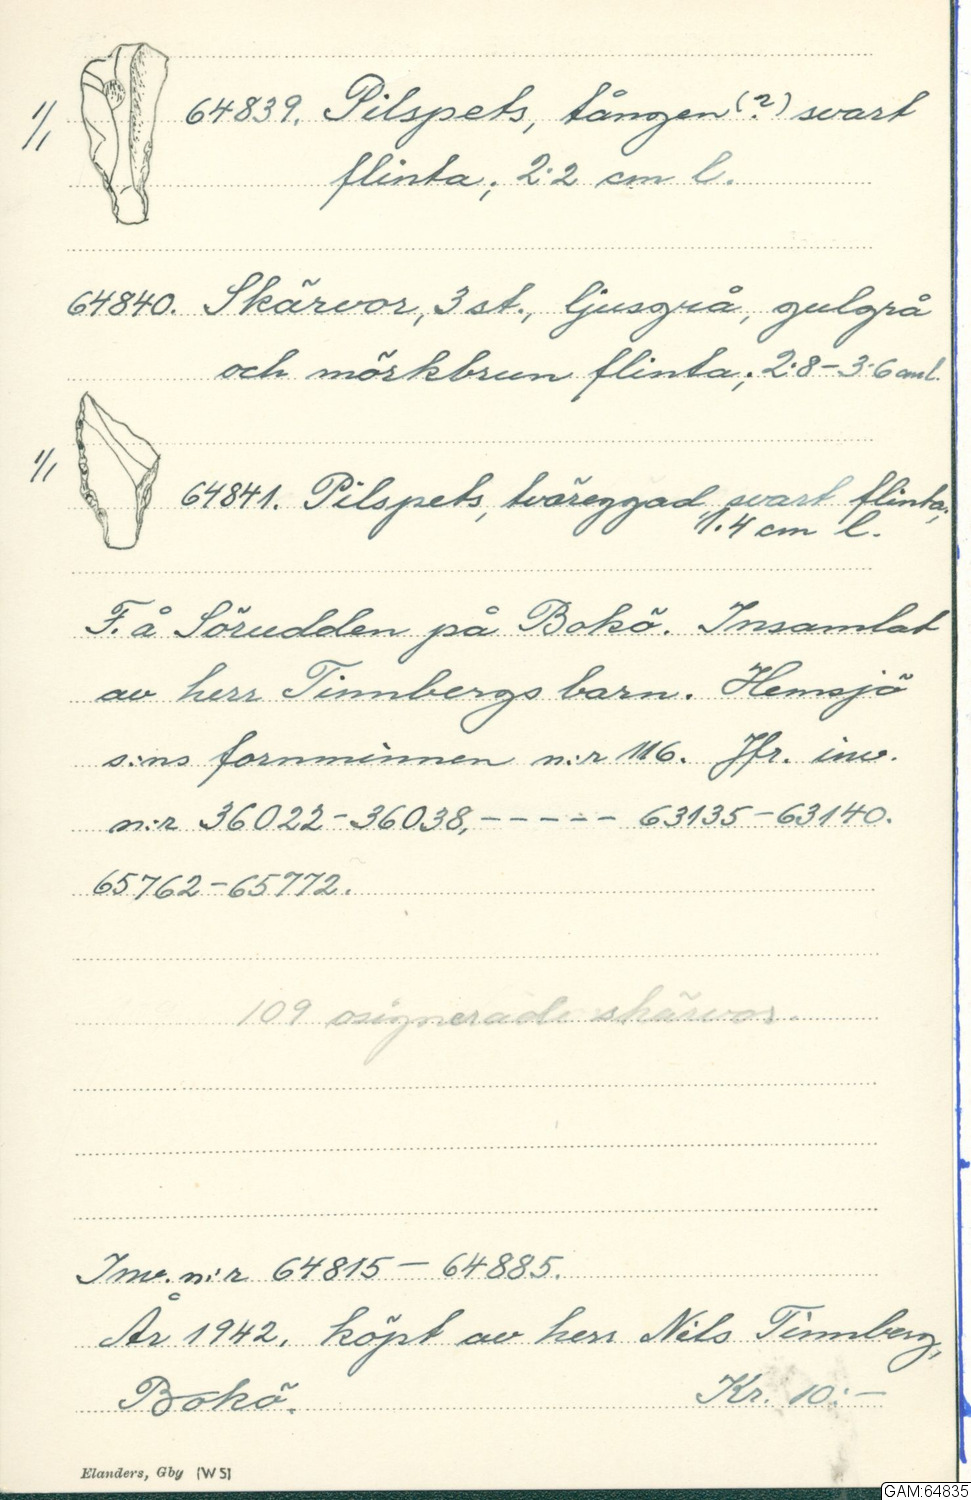 1/1 64839. Pilspets, tången (?) svart
flinta; 2.2 cm l.
64840. Skärvor, 3 st., ljusgrå, gulgrå
och mörkbrun flinta; 2.8-3.6 cm l.
1/1 64841. Pilspets, tväreggad, svart flinta;
1.4 cm l.
F. å Sörudden på Bokö. Insamlat
av herr Timmbergs barn. Hemsjö
s:ns fornminnen n:r 116. Jfr. inv.
n:r 36022-36038, ----- 63135-63140.
65762-65772.
109 osignerade skärvor.
Inv. n:r 64815 - 64885.
År 1942. köpt av herr Nils Timmberg,
Bokö. Kr. 10:-
Elanders, Gby (W 5)
GAM:64835